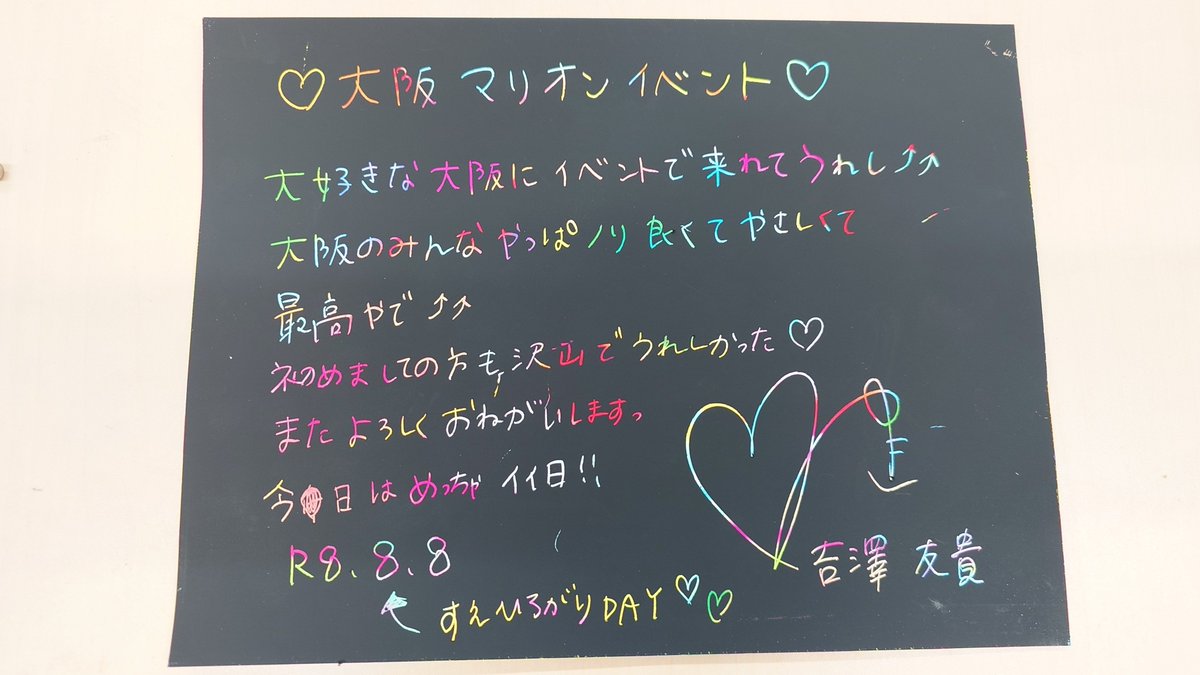 ♡大阪 マリオン イベント♡
大好きな 大阪に イベントで 来れて うれし⤴⤴
大阪のみんな やっぱ ノリ 良くて やさしくて
最高やで⤴⤴
初めましての方も 沢山で うれしかった♡
また よろしく おねがいしますっ
今日は めっちゃ イイ日!!
R8.8.8
すえひろがりDAY♡♡
吉澤 友貴